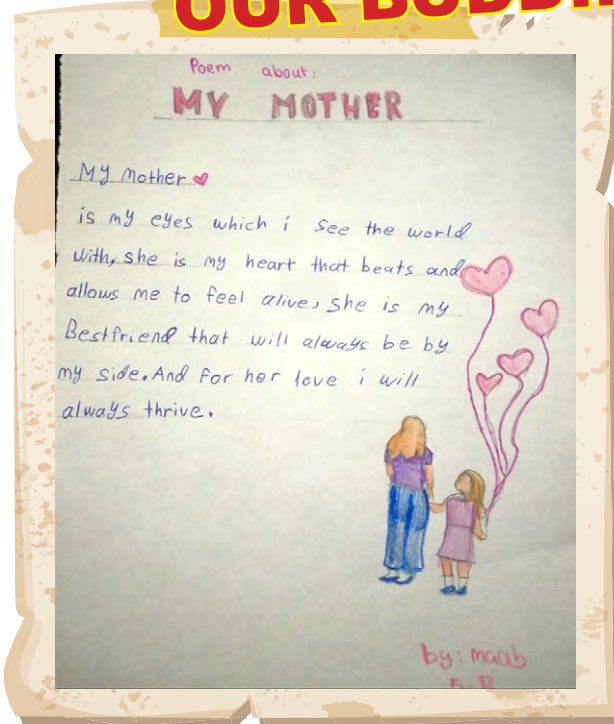 OUR
Poem about:
MY MOTHER
My mother
is my eyes which i see the world
with, she is my heart that beats and
allows me to feel alive, she is my
Bestfriend that will always be by
my side. And for her love i will
always thrive.
by: maab